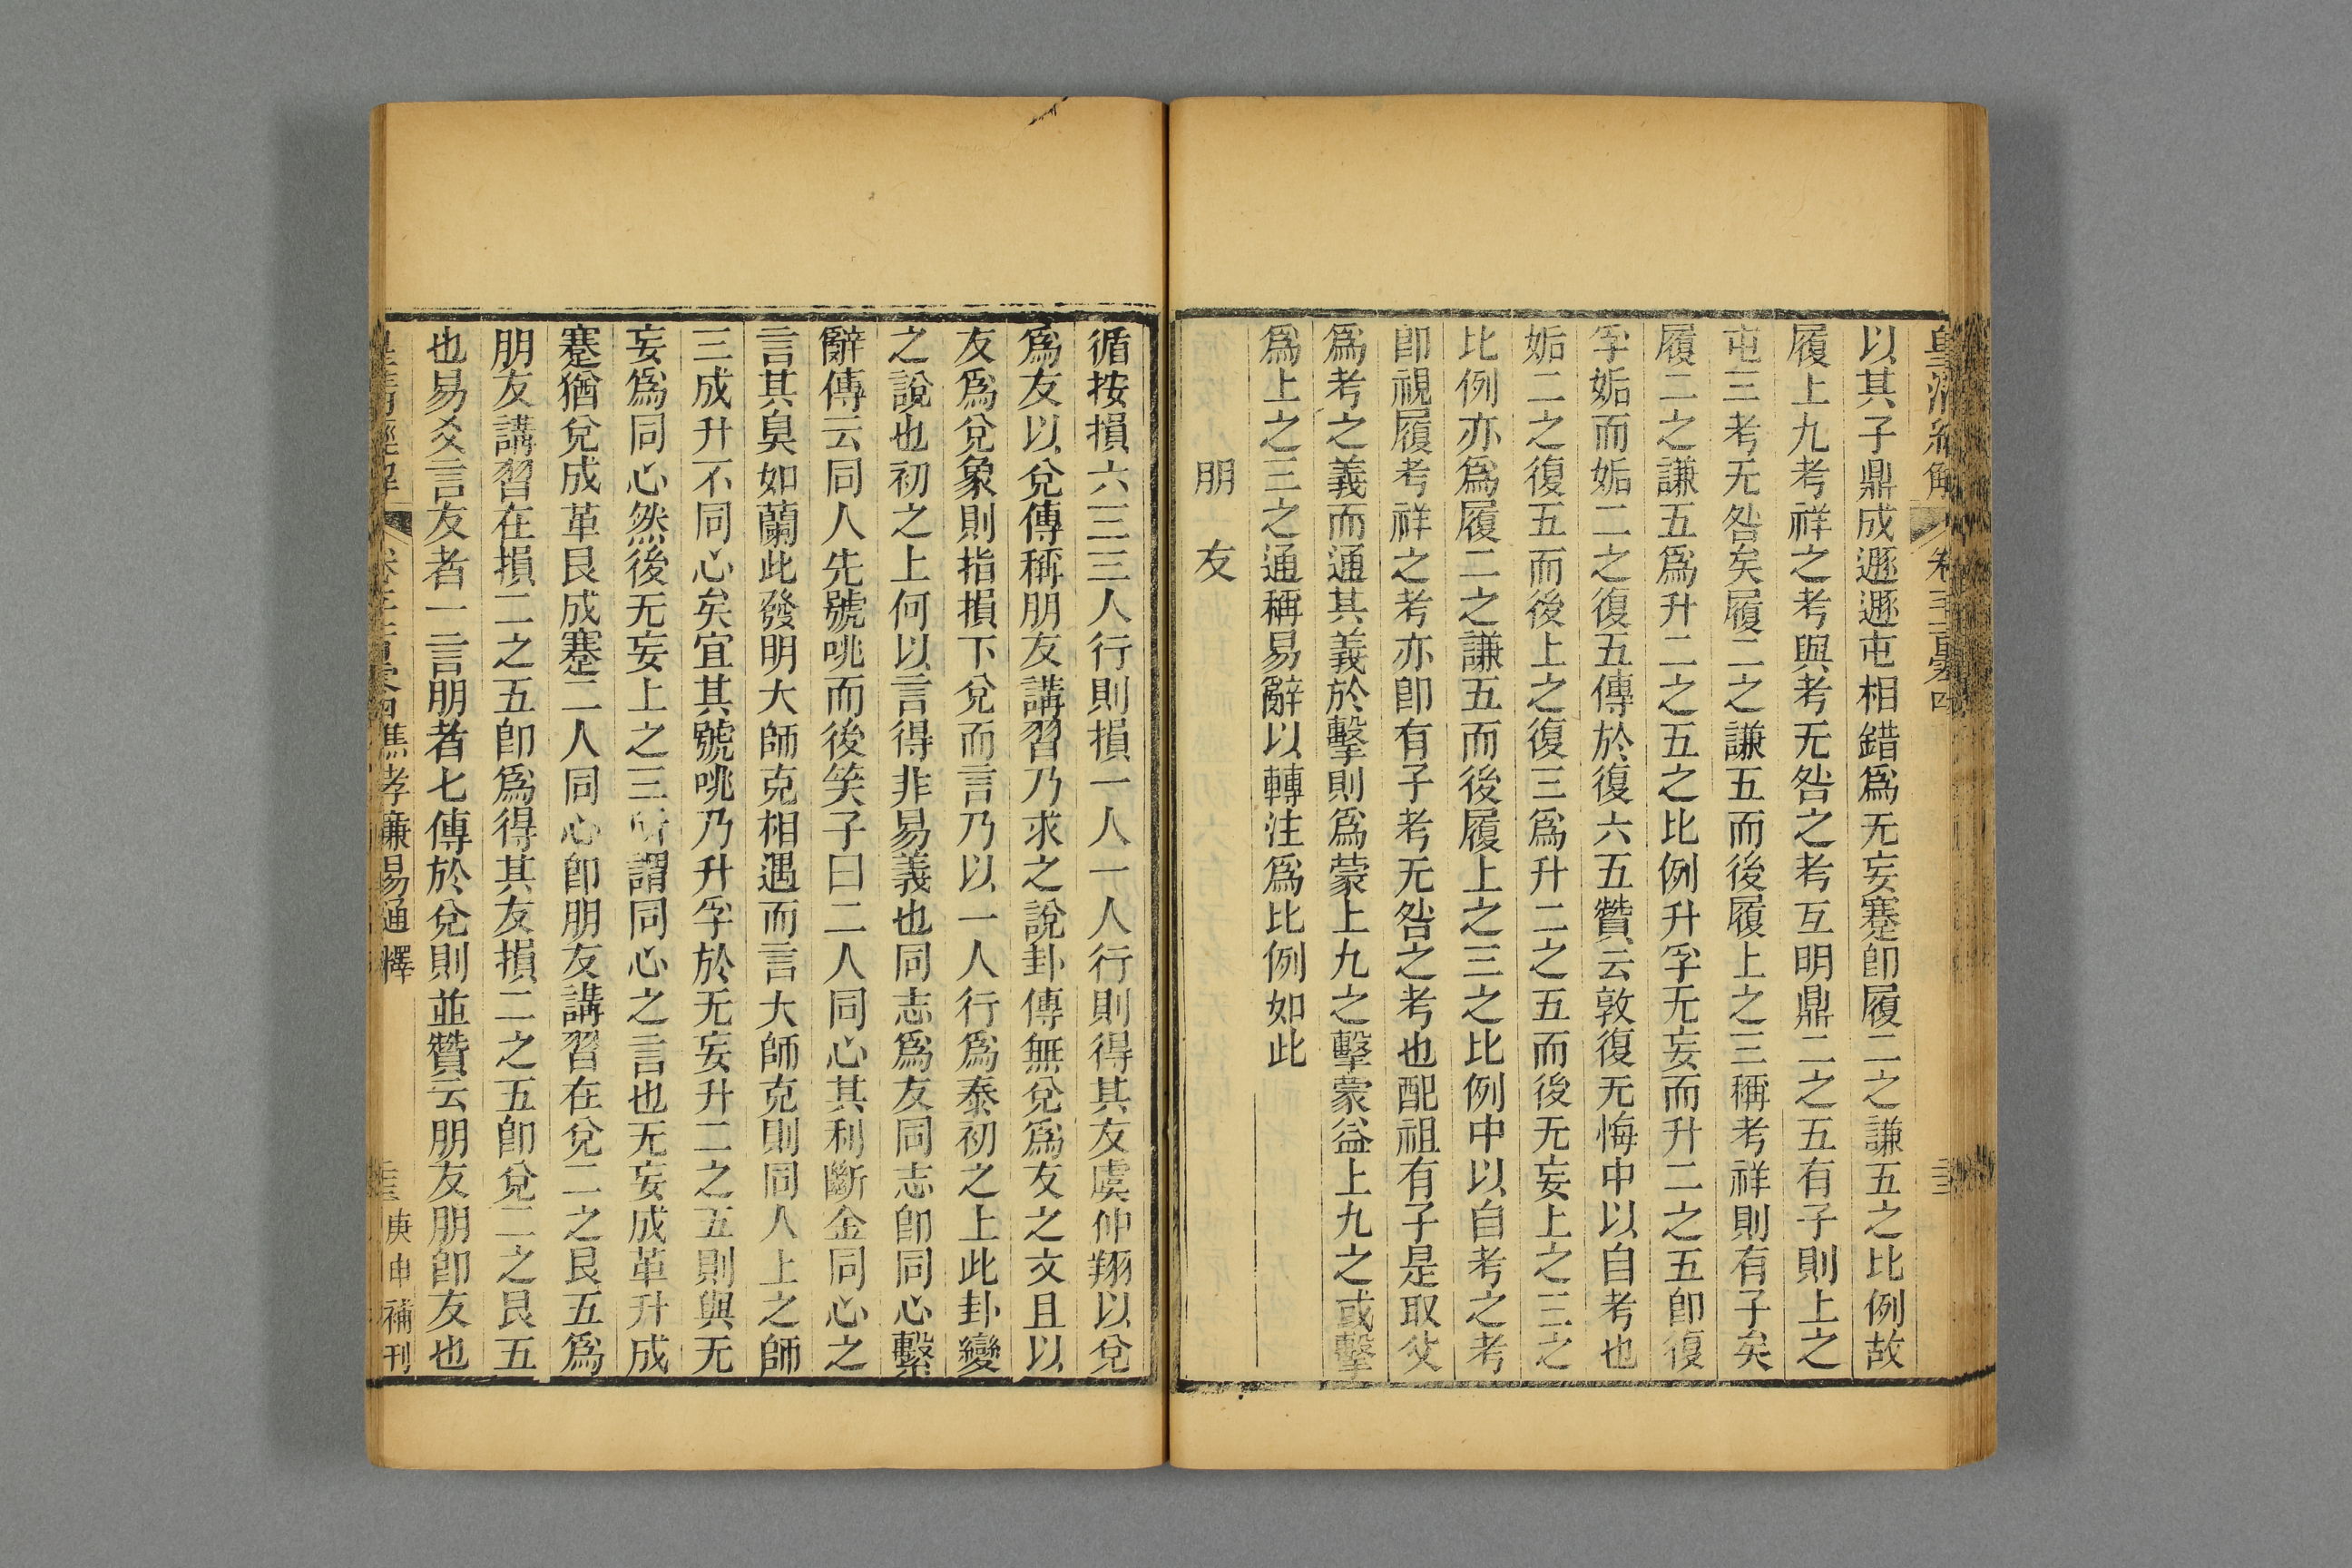 以其子鼎成遯遯屯相錯爲无妄蹇卽履二之謙五之比例故
履上九考祥之考與考无咎之考互明鼎二之五有子則上之
屯三考无咎矣履二之謙五而後履上之三稱考祥則有子矣
履二之謙五爲升二之五之比例升孚无妄而升二之五卽復
孚姤而姤二之復五傳於復六五贊云敦復无悔中以自考也
姤二之復五而後上之復三爲升二之五而後无妄上之三之
比例亦爲履二之謙五而後履上之三之比例中以自考之考
卽視履考祥之考亦卽有子考无咎之考也配祖有子是取父
爲考之義而通其義於擊則爲蒙上九之擊蒙益上九之或擊
爲上之三之通稱易辭以轉注爲比例如此
朋友
循按損六三三人行則損一人一人行則得其友虞仲翔以兌
爲友以兌傳稱朋友講習乃求之說卦傳無兌爲友之文且以
友爲兌象則指損下兌而言乃以一人行爲泰初之上此卦變
之說也初之上何以言得非易義也同志爲友同志卽同心繫
辭傳云同人先號咷而後笑子曰二人同心其利斷金同心之
言其臭如蘭此發明大師克相遇而言大師克則同人上之師
三成升不同心矣宜其號咷乃升孚於无妄升二之五則與无
妄爲同心然後无妄上之三所謂同心之言也无妄成革升成
蹇猶兌成革艮成蹇二人同心卽朋友講習在兌二之艮五爲
朋友講習在損二之五卽爲得其友損二之五卽兌二之艮五
也易爻言友者一言朋者七傳於兌則並贊云朋友朋卽友也
焦孝廉易通釋
庚申補刊